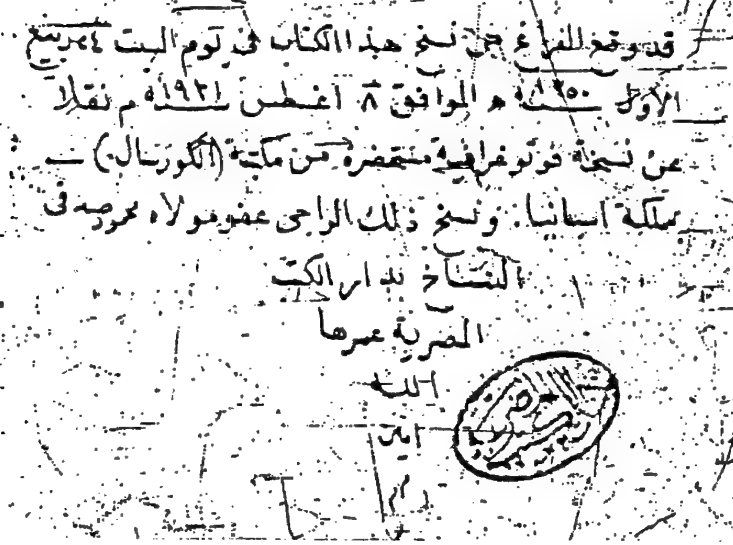 قد وقع الفراغ من نسخ هذا الكتاب فى يوم السبت ٤ من ربيع
الأول سنة ١٣٥٠ ه الموافق ٨ اغسطس سنة ١٩٣١ م نقلا
عن نسخة فوتوغرافية مستحضرة من مكتبة (الكوريال)
بمملكة اسبانيا. ونسخ ذلك الراجى عفو مولاه محمود صدقى
النساخ بدار الكتب
المصرية عمرها
الله
امين